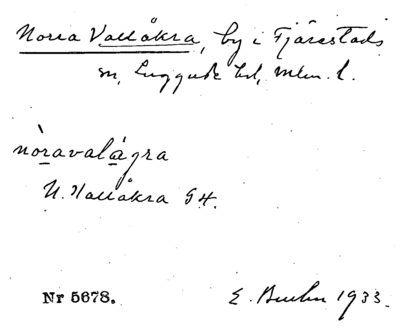 Norra Vallåkra, by i Fjärestads
sn, Luggude hd, Mlm. l.
nòravalågra
N. Vallåkra GK.
Nr 5678.
E. 1933.